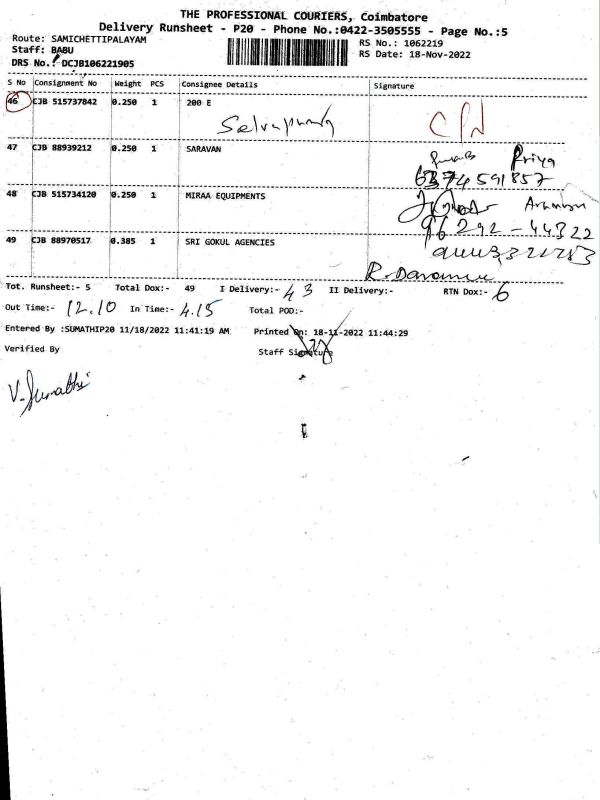 THE PROFESSIONAL COURIERS, Coimbatore
Delivery Runsheet - P20 - Phone No.:0422-3505555 - Page No.:5
Route: SAMICHETTIPALAYAM
RS No.: 1062219
Staff: BABU
RS Date: 18-Nov-2022
DRS No.: DCJB106221905
S No Consignment No Weight PCS Consignee Details Signature
46 CJB 515737842 0.250 1 200 E
47 CJB 88939212 0.250 1 SARAVAN Priya
6374591857
48 CJB 515734120 0.250 1 MIRAA EQUIPMENTS
96292-44322
49 CJB 88970517 0.385 1 SRI GOKUL AGENCIES
Tot. Runsheet:- 5 Total Dox:- 49 I Delivery:- 43 II Delivery:- RTN Dox:- 6
Out Time:- 12.10 In Time:- 4.15 Total POD:-
Entered By :SUMATHIP20 11/18/2022 11:41:19 AM Printed On: 18-11-2022 11:44:29
Verified By Staff Signature
V. Sumathi